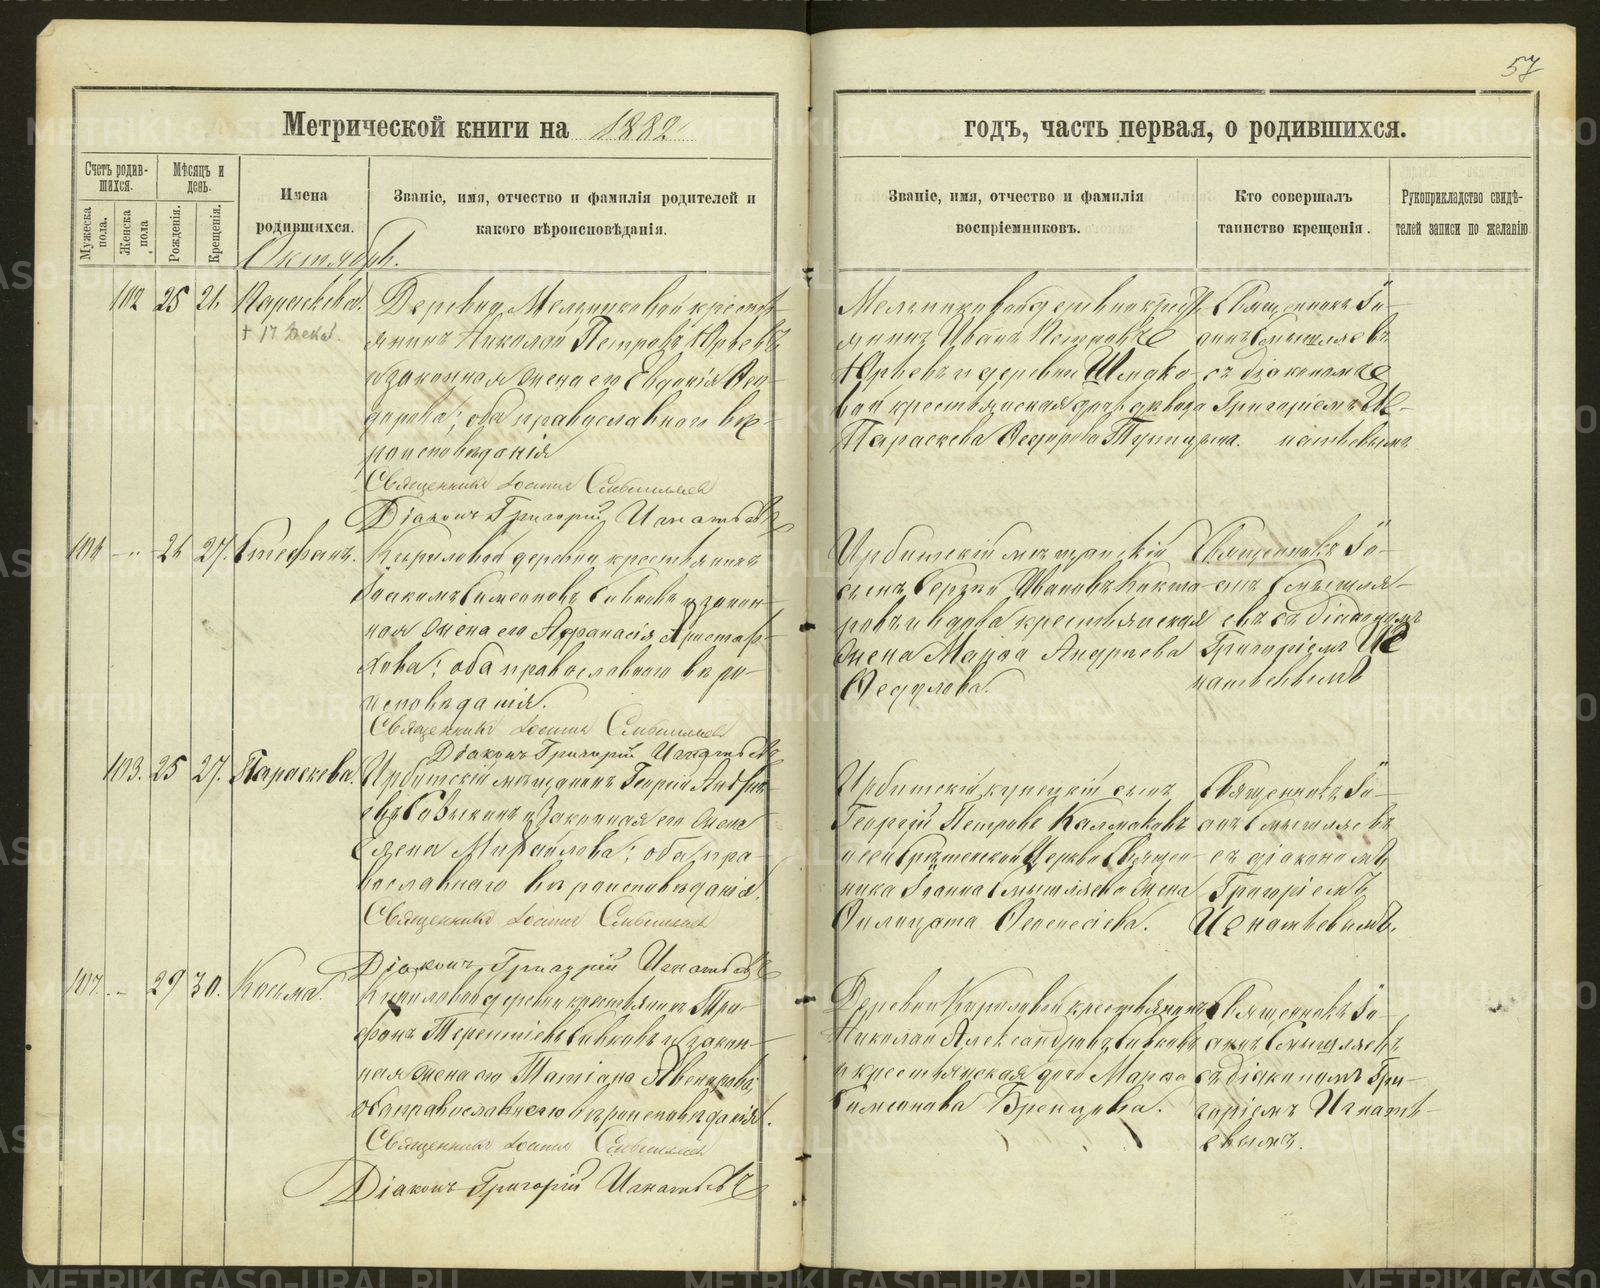 57
Метрической книги на 1882
годъ, часть первая, о родившихся.
Счетъ родив-
шихся.
Мѣсяцъ и
день.
Мужеска
пола.
Женска
пола
Рожденія.
Крещенія.
Имена
родившихся.
Званіе, имя, отчество и фамилія родителей и
какого вѣроисповѣданія.
Званіе, имя, отчество и фамилія
воспріемниковъ.
Кто совершалъ
таинство крещенія.
Рукоприкладство свидѣ-
телей записи по желанію
Октябрь.
102 25 26 Параскева.
Деревни Мельниковой кресть-
янинъ Николай Петровъ Юрьевъ
и законная жена его Евдокія Ѳео-
дорова; оба православнаго вѣ-
роисповѣданія
Священникъ Іоаннъ Смышляевъ
Діаконъ Григорій Игнатьевъ
Мельниковой деревни крест.
янинъ Иванъ Петровъ
Юрьевъ и деревни
вой крестьянская дочь девица
Параскева Ѳедорова
Священникъ Іо-
аннъ Смышляевъ
съ діакономъ
Григоріемъ Иг-
натьевымъ
106 26 27. Стефанъ.
Кириловой деревни крестьянинъ
Симеоновъ и закон-
ная жена его Афанасія Аристар-
хова; оба православнаго вѣро-
исповѣданія.
Священникъ Іоаннъ Смышляевъ
Діаконъ Григорій Игнатьевъ
Ирбитскій мѣщанскій
сынъ Сергѣй Ивановъ
крестьянская
жена Марѳа Андреева
Ѳедулова.
Священникъ Іо-
аннъ Смышля-
евъ съ діакономъ
Григоріемъ Иг
натьевымъ
103. 25 27. Параскева.
Ирбитскій мѣщанинъ Георгій Андрѣ-
евъ и законная его жена
Елена Михайлова; оба пра-
вославнаго вѣроисповѣданія.
Священникъ Іоаннъ Смышляевъ
Діаконъ Григорій Игнатьевъ
Ирбитскій купецкій сынъ
Георгій Петровъ Калмаковъ
и сей Срѣтенской Церкви Священ-
ника Іоанна Смышляева жена
Ѳеоктиста
Священникъ Іо-
аннъ Смышляевъ
съ діакономъ
Григоріемъ
Игнатьевымъ.
107. 29 30. Косма.
Кириловой деревни крестьянинъ Три-
фонъ Терентіевъ Сивковъ и закон-
ная жена его Татіана
оба православнаго вѣроисповѣданія.
Священникъ Іоаннъ Смышляевъ
Діаконъ Григорій Игнатьевъ
Деревни Кириловой крестьянинъ
Николай Александровъ Сивковъ
и крестьянская дочь Марѳа
Симеонова
Священникъ Іо-
аннъ Смышляевъ
съ діакономъ Гри-
горіемъ Игнать-
евымъ.
METRIKI.GASO-URAL.RU